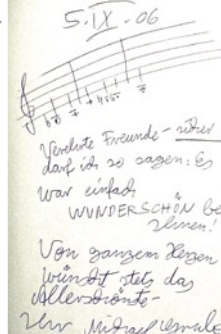 5.IX.-06
Verehrte Freunde - sicher
darf ich so sagen: Es
war einfach
WUNDERSCHÖN bei
Ihnen!
Von ganzem Herzen
wünscht stets das
Allerschönste -
Ihr Michael